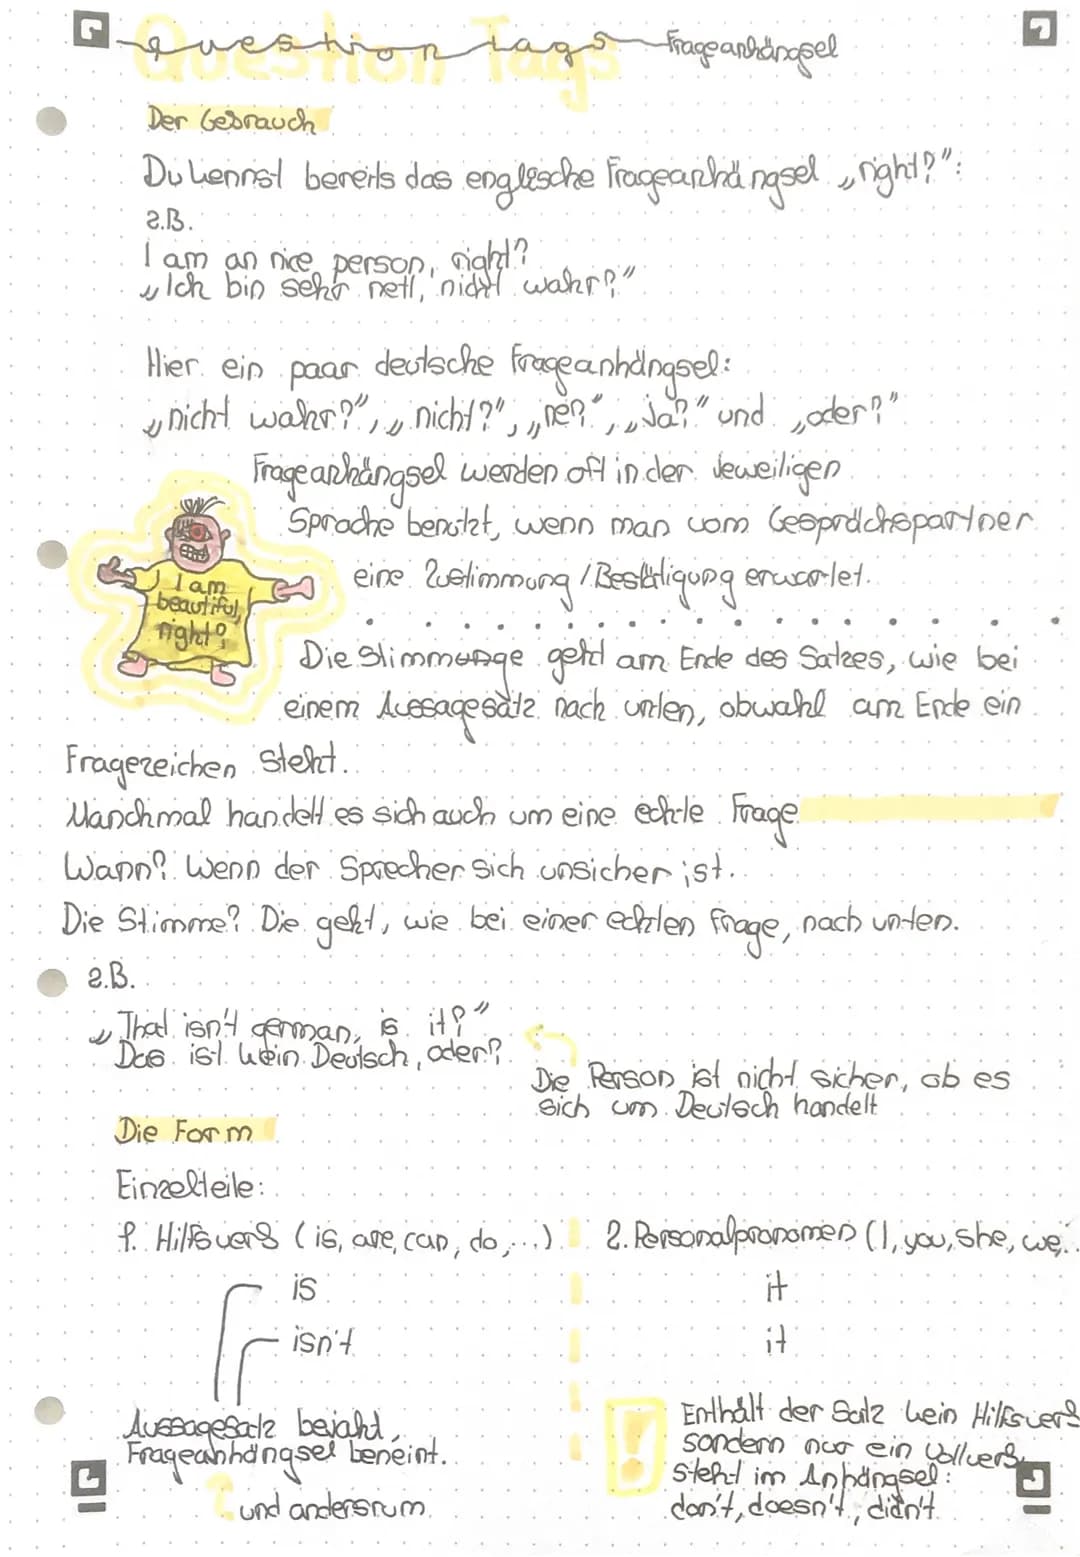 Question Tags Frageanhängsel
Der Gebrauch
Du kennst bereits das englische Frageanhängsel „right?":
z.B.
I am an nice person, right?
„Ich bin sehr nett, nicht wahr?"
Hier ein paar deutsche Frageanhängsel:
„nicht wahr?", „nicht?", „ne?", „Ja?" und „oder?"
Frageanhängsel werden oft in der Jeweiligen
Sprache benützt, wenn man vom Gesprächspartner
eine Zustimmung / Bestätigung erwartet.
I am
beautiful,
right?
Die Stimmunge geht am Ende des Satzes, wie bei
einem Aussagesatz nach unten, obwahl am Ende ein
Fragezeichen steht.
Manchmal handelt es sich auch um eine echte Frage
Wann? Wenn der Sprecher sich unsicher ist.
Die Stimme? Die geht, wie bei einer echten Frage, nach unten.
z.B.
„That isn't german, is it?"
Das ist kein Deutsch, oder?
Die Person ist nicht sicher, ob es
sich um Deutsch handelt
Die Form
Einzelteile:
1. Hilfsverb (is, are, can, do,...) 2. Personalpronomen (I, you, she, we,..
is it
isn't it
Aussagesatz bejaht,
Frageanhängsel beneint.
und andersrum
Enthält der Satz kein Hilfsverb
sondern nur ein Vollverb,
steht im Anhängsel:
don't, doesn't, didn't